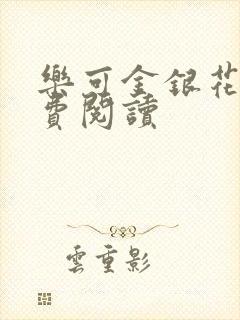 樂可金銀花
費閱讀
雲重影